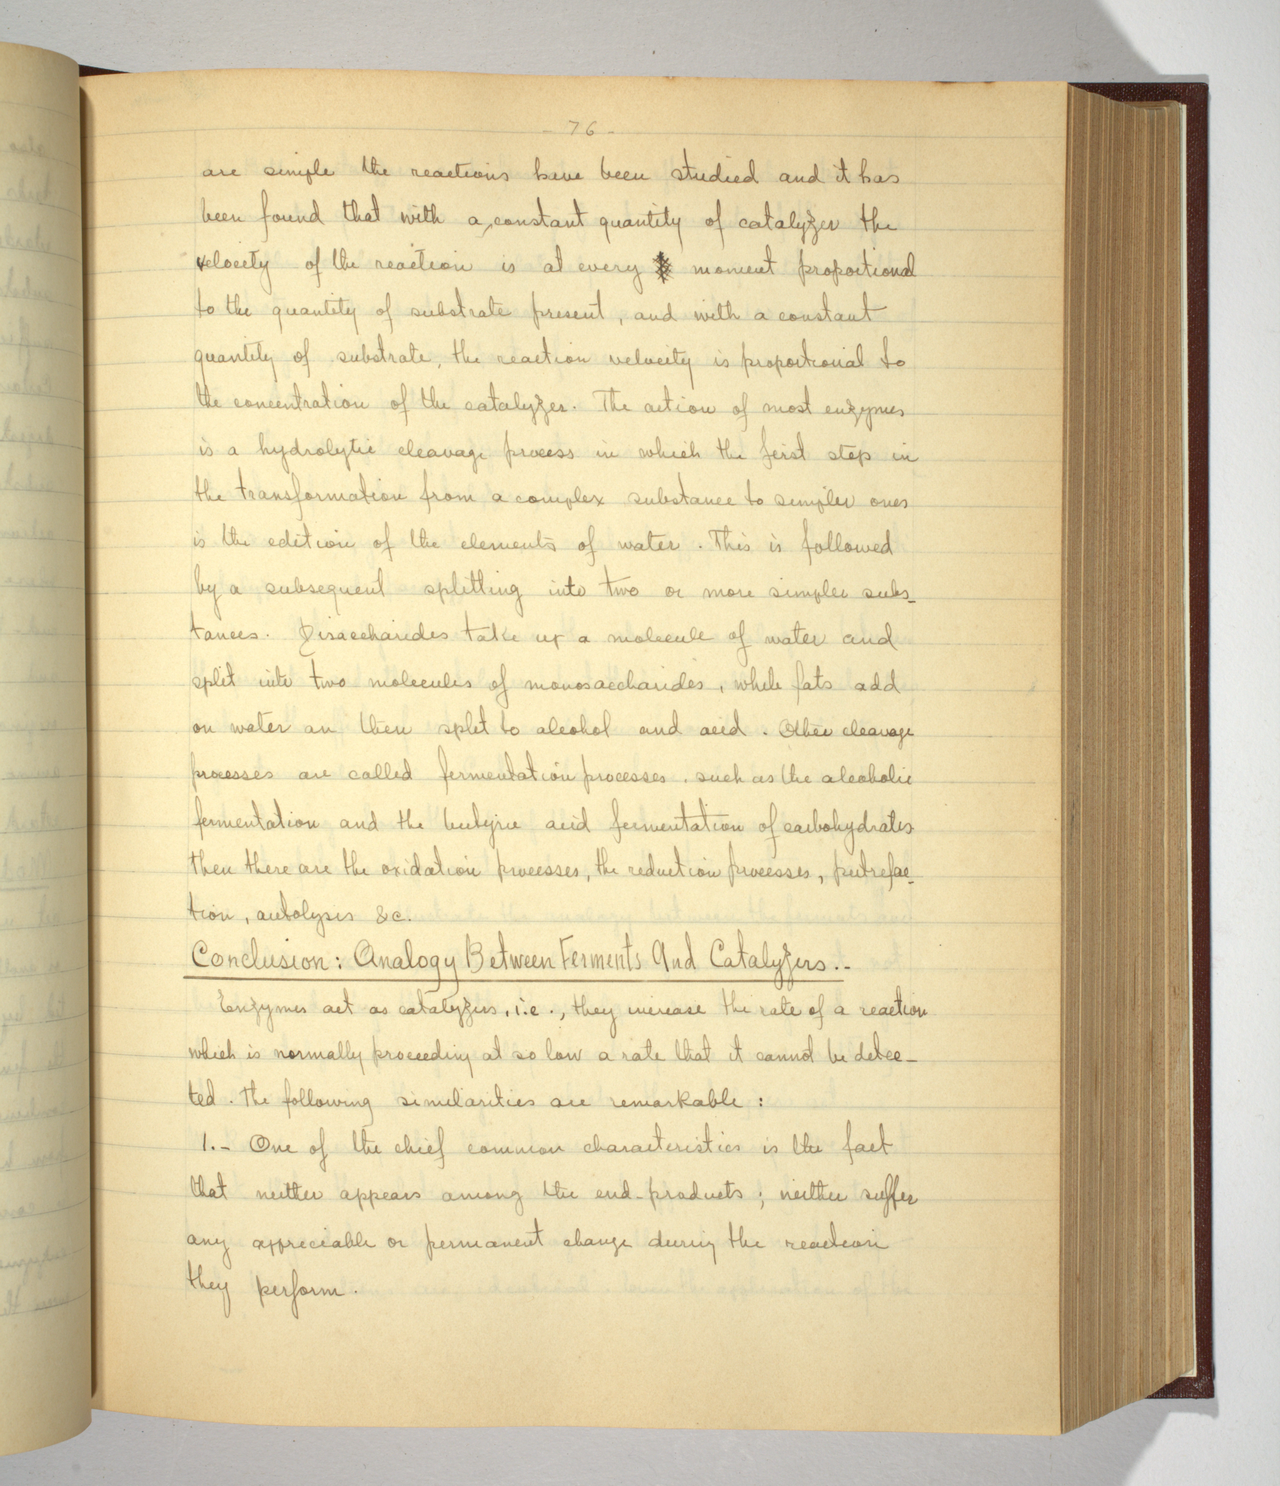 - 76 -
are simple the reactions have been studied and it has
been found that with a constant quantity of catalyzer the
velocity of the reaction is at every moment proportional
to the quantity of substrate present, and with a constant
quantity of substrate, the reaction velocity is proportional to
the concentration of the catalyzer. The action of most enzymes
is a hydrolytic cleavage process in which the first step in
the transformation from a complex substance to simpler ones
is the edition of the elements of water. This is followed
by a subsequent splitting into two or more simpler subs-
tances. Disaccharides take up a molecule of water and
split into two molecules of monosaccharides, while fats add
on water an then split to alcohol and acid. Other cleavage
processes are called fermentation processes. such as the alcoholic
fermentation and the butyric acid fermentation of carbohydrates
then there are the oxidation processes, the reduction processes, putrefac-
tion, autolysis &c.
Conclusion: Analogy Between Ferments And Catalyzers.-
Enzymes act as catalyzers, i.e., they increase the rate of a reaction
which is normally proceeding at so low a rate that it cannot be detec-
ted. The following similarities are remarkable:
1.- One of the chief common characteristics is the fact
that neither appears among the end-products; neither suffer
any appreciable or permanent change during the reaction
they perform.